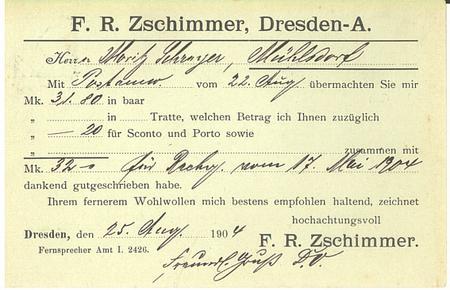 F. R. Zschimmer, Dresden-A.
Herrn Moritz Schreyer, Mühlsdorf
Mit Postanw. vom 22. Aug. übermachten Sie mir
Mk. 31.80 in baar
„ in Tratte, welchen Betrag ich Ihnen zuzüglich
„ — 20 für Sconto und Porto sowie
„ zusammen mit
Mk. 32 - für Rechg. vom 17. Mai 1904
dankend gutgeschrieben habe.
Ihrem fernerem Wohlwollen mich bestens empfohlen haltend, zeichnet
hochachtungsvoll
Dresden, den 25. Aug. 1904
F. R. Zschimmer.
Fernsprecher Amt I. 2426.
Freundl. Gruß D.O.